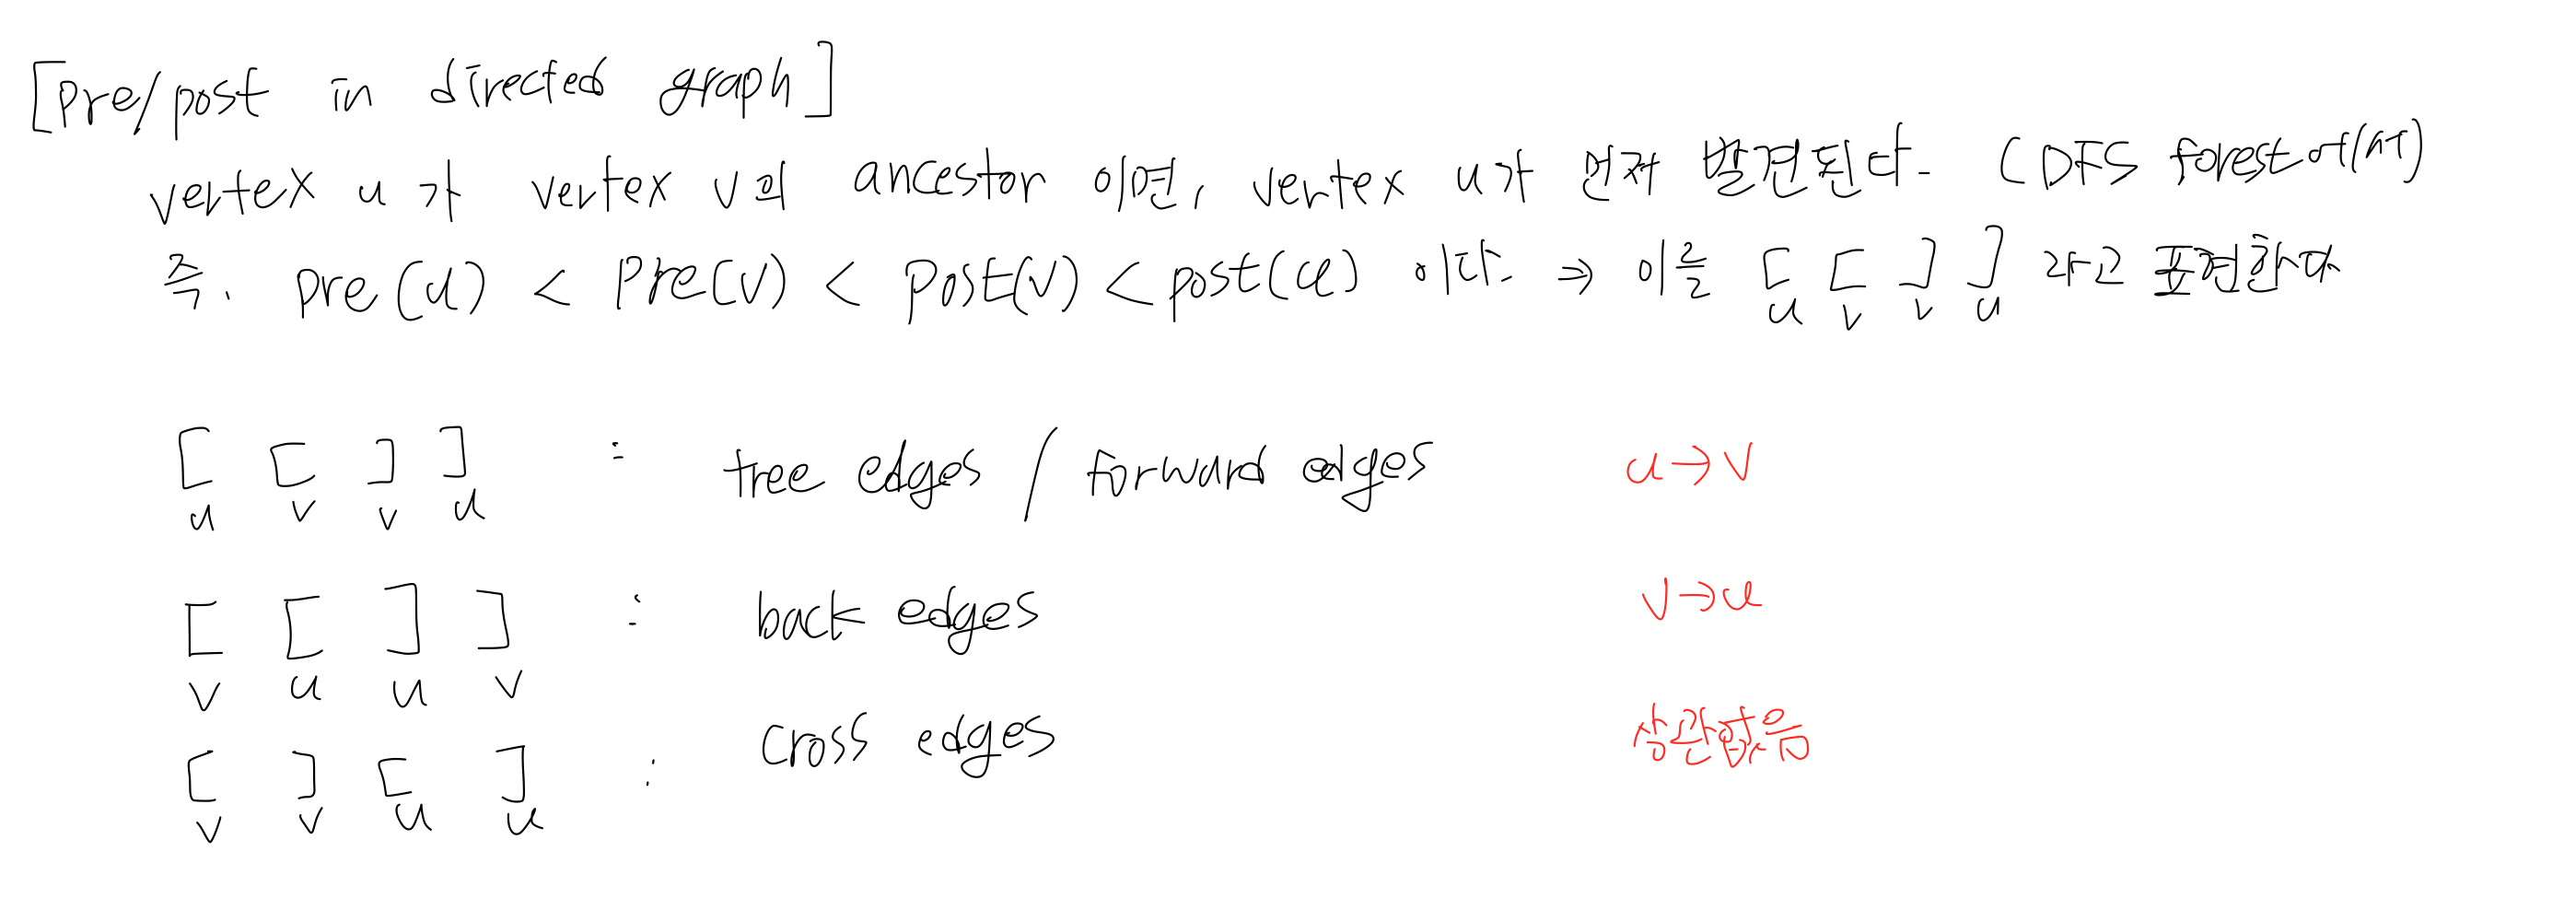 [pre/post in directed graph]
vertex u가 vertex v의 ancestor 이면, vertex u가 먼저 발견된다. (DFS forest에서)
즉, pre(u) < pre(v) < post(v) < post(u) 이다. ⇒ 이를 [ [ ] ] 라고 표현한다
u v v u
[ [ ] ] : tree edges / forward edges u→v
u v v u
[ [ ] ] : back edges v→u
v u u v
[ ] [ ] : cross edges 상관없음
v v u u